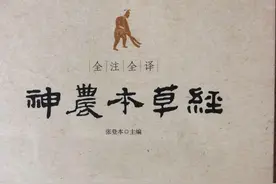 全注全译
神農本草經
张登本○主编